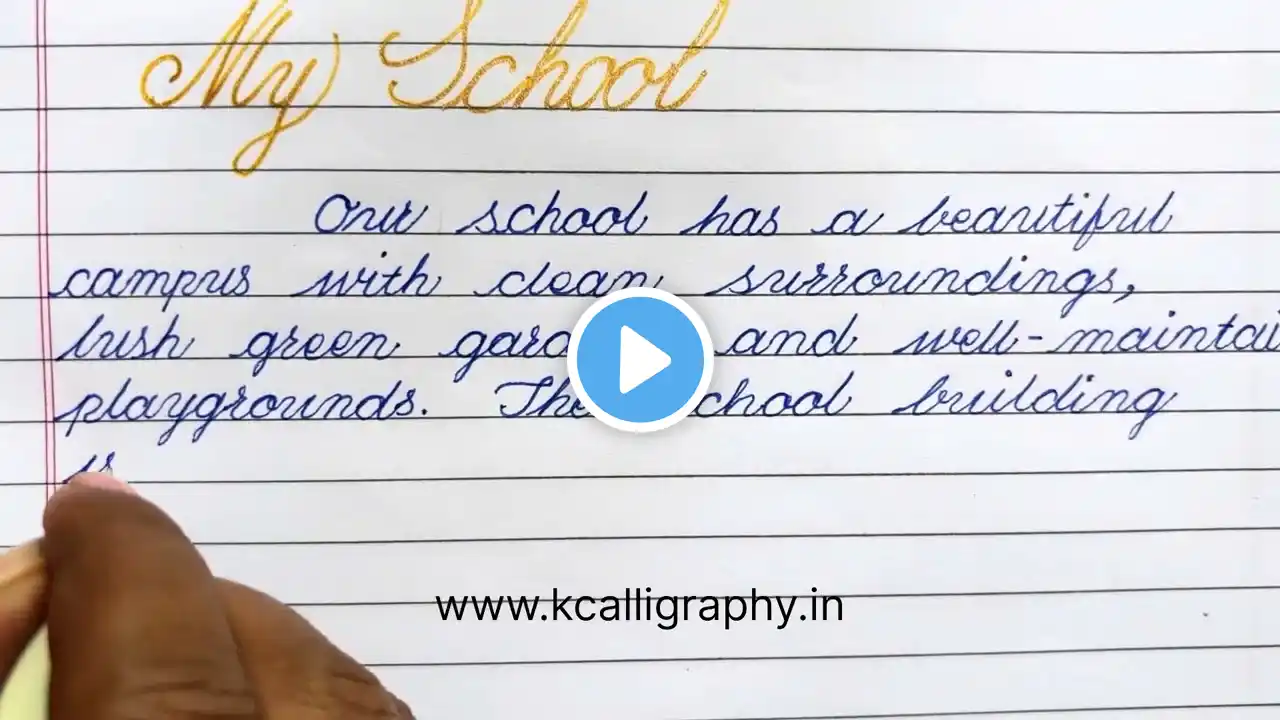 My School
Our school has a beautiful
campus with clean surroundings,
lush green and well-maintai
playgrounds. The school building
is
www.kcalligraphy.in